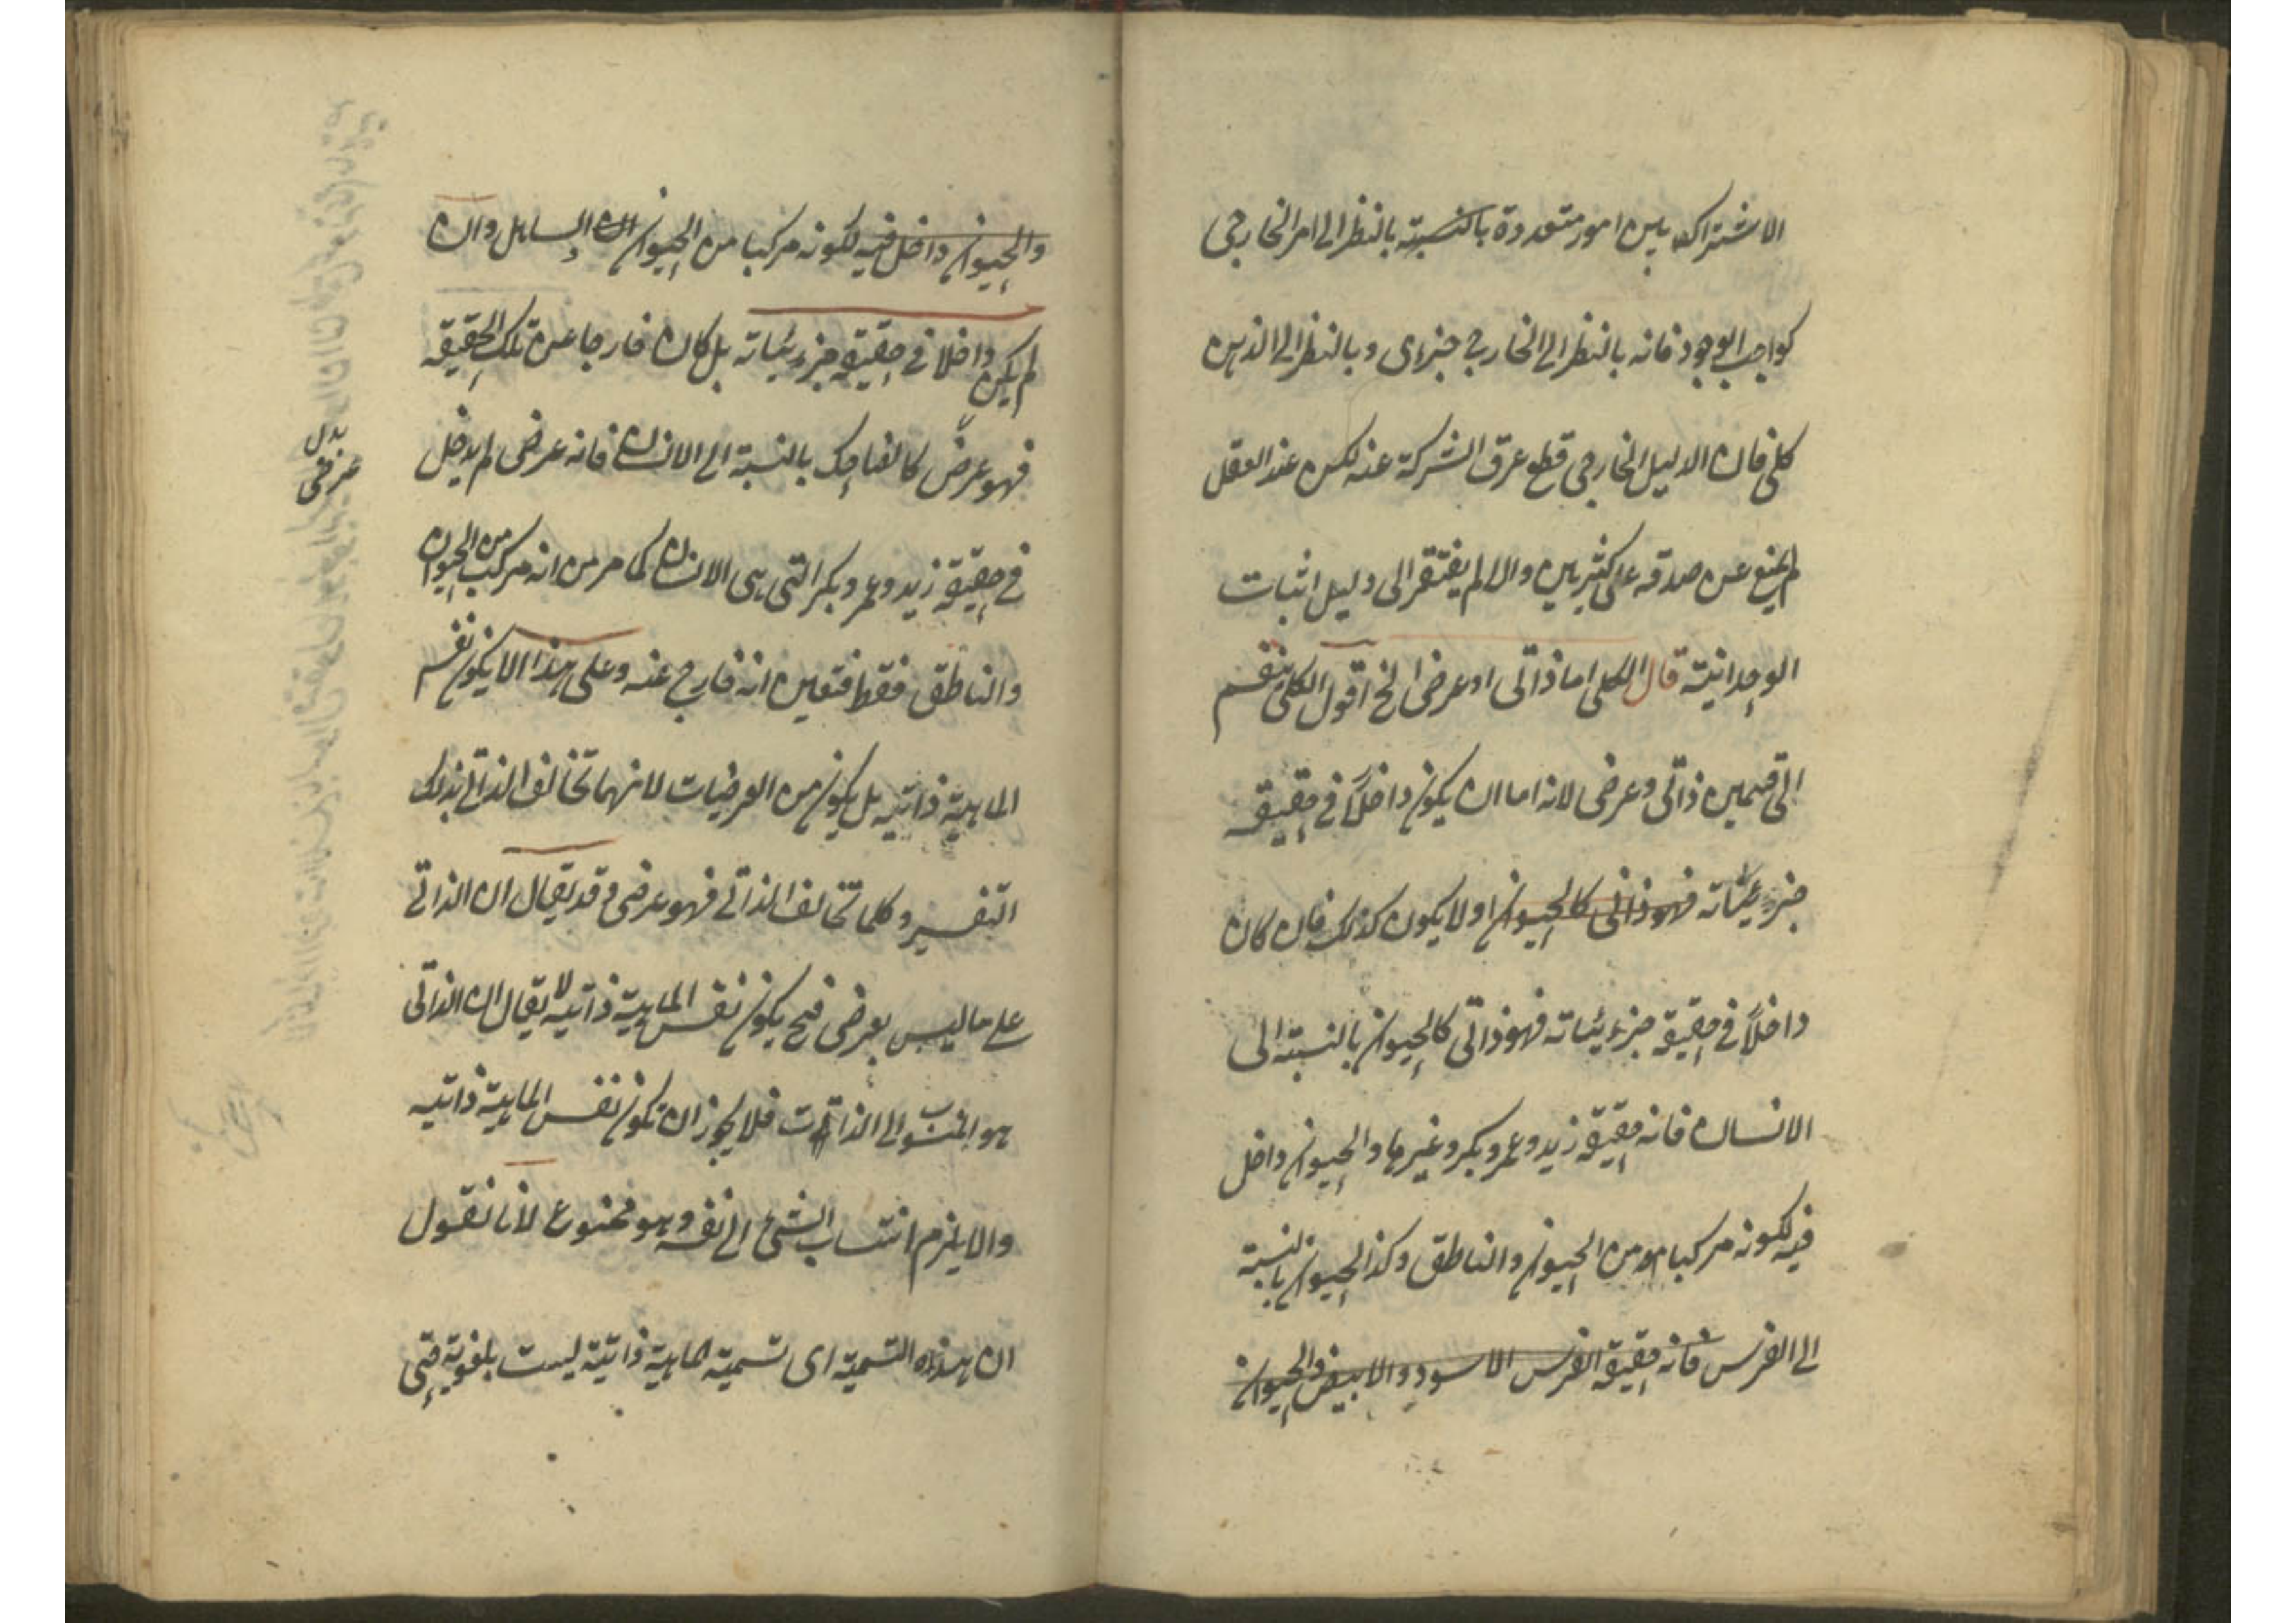 الاشتراك بين امور متعددة بالنسبة بالنظر الى امر الخارجى
كواجب الوجود فانه بالنظر الى الخارج جزءى وبالنظر الى الذهن
كلى فان الدليل الخارجى قطع عرق الشركة عنه لكن عند العقل
لم يمنع عن صدقه على كثيرين والا لم يفتقر الى دليل اثبات
الوحدانية قال الكلى اما ذاتى او عرضى الخ اقول الكلى منقسم
الى قسمين ذاتى وعرضى لانه اما ان يكون داخلاً فى حقيقة
جزءيئاته فهو ذاتى كالحيوان او لا يكون كذلك فان كان
داخلاً فى حقيقة جزءيئاته فهو ذاتى كالحيوان بالنسبة الى
الانسان فانه حقيقة زيد وعمرو وبكر وغيرها والحيوان داخل
فيه لكونه مركبا من الحيوان والناطق وكذا الحيوان بالنسبة
الى الفرس فانه حقيقة الفرس الاسود والابيض والحيوان
والحيوان داخل فيه لكونه مركبا من الحيوان الصاهل وان
لم يكن داخلا فى حقيقة جزءيئاته بل كان خارجا عن تلك الحقيقة
فهو عرض كالضاحك بالنسبة الى الانسان فانه عرضى لم يدخل
بدل
عرضى
فى حقيقة زيد وعمرو وبكر التى هى الانسان كما مر من انه مركب من الحيوان
والناطق فقط فتعين انه خارج عنه وعلى هذا الا يكون نفس
الماهية ذاتية بل يكون من العرضيات لانهما تخالف الذاتى بذلك
التفسير وكلما تخالف الذاتى فهو عرضى وقد يقال ان الذاتى
على ما ليس بعرضى فح يكون نفس الماهية ذاتية لا يقال ان الذاتى
هو المنسوب الى الذات فلا يجوز ان تكون نفس الماهية ذاتية
والا يلزم انتساب الشئ الى نفسه وهو ممنوع لانا نقول
ان هذه التسمية اى تسمية الماهية ذاتية ليست بلغوية حتى